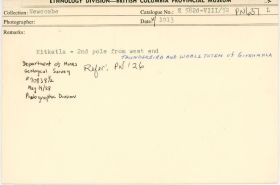 ETHNOLOGY DIVISION—BRITISH COLUMBIA PROVINCIAL MUSEUM
Collection: Newcombe
Catalogue No.: PN 657
Photographer:
Date 1913
Remarks:
Kitkatla - 2nd pole from west end
THUNDERBIRD AND WHALE TOTEM OF
Department of Mines
Geological Survey
Refer. PN 126
Photographic Division